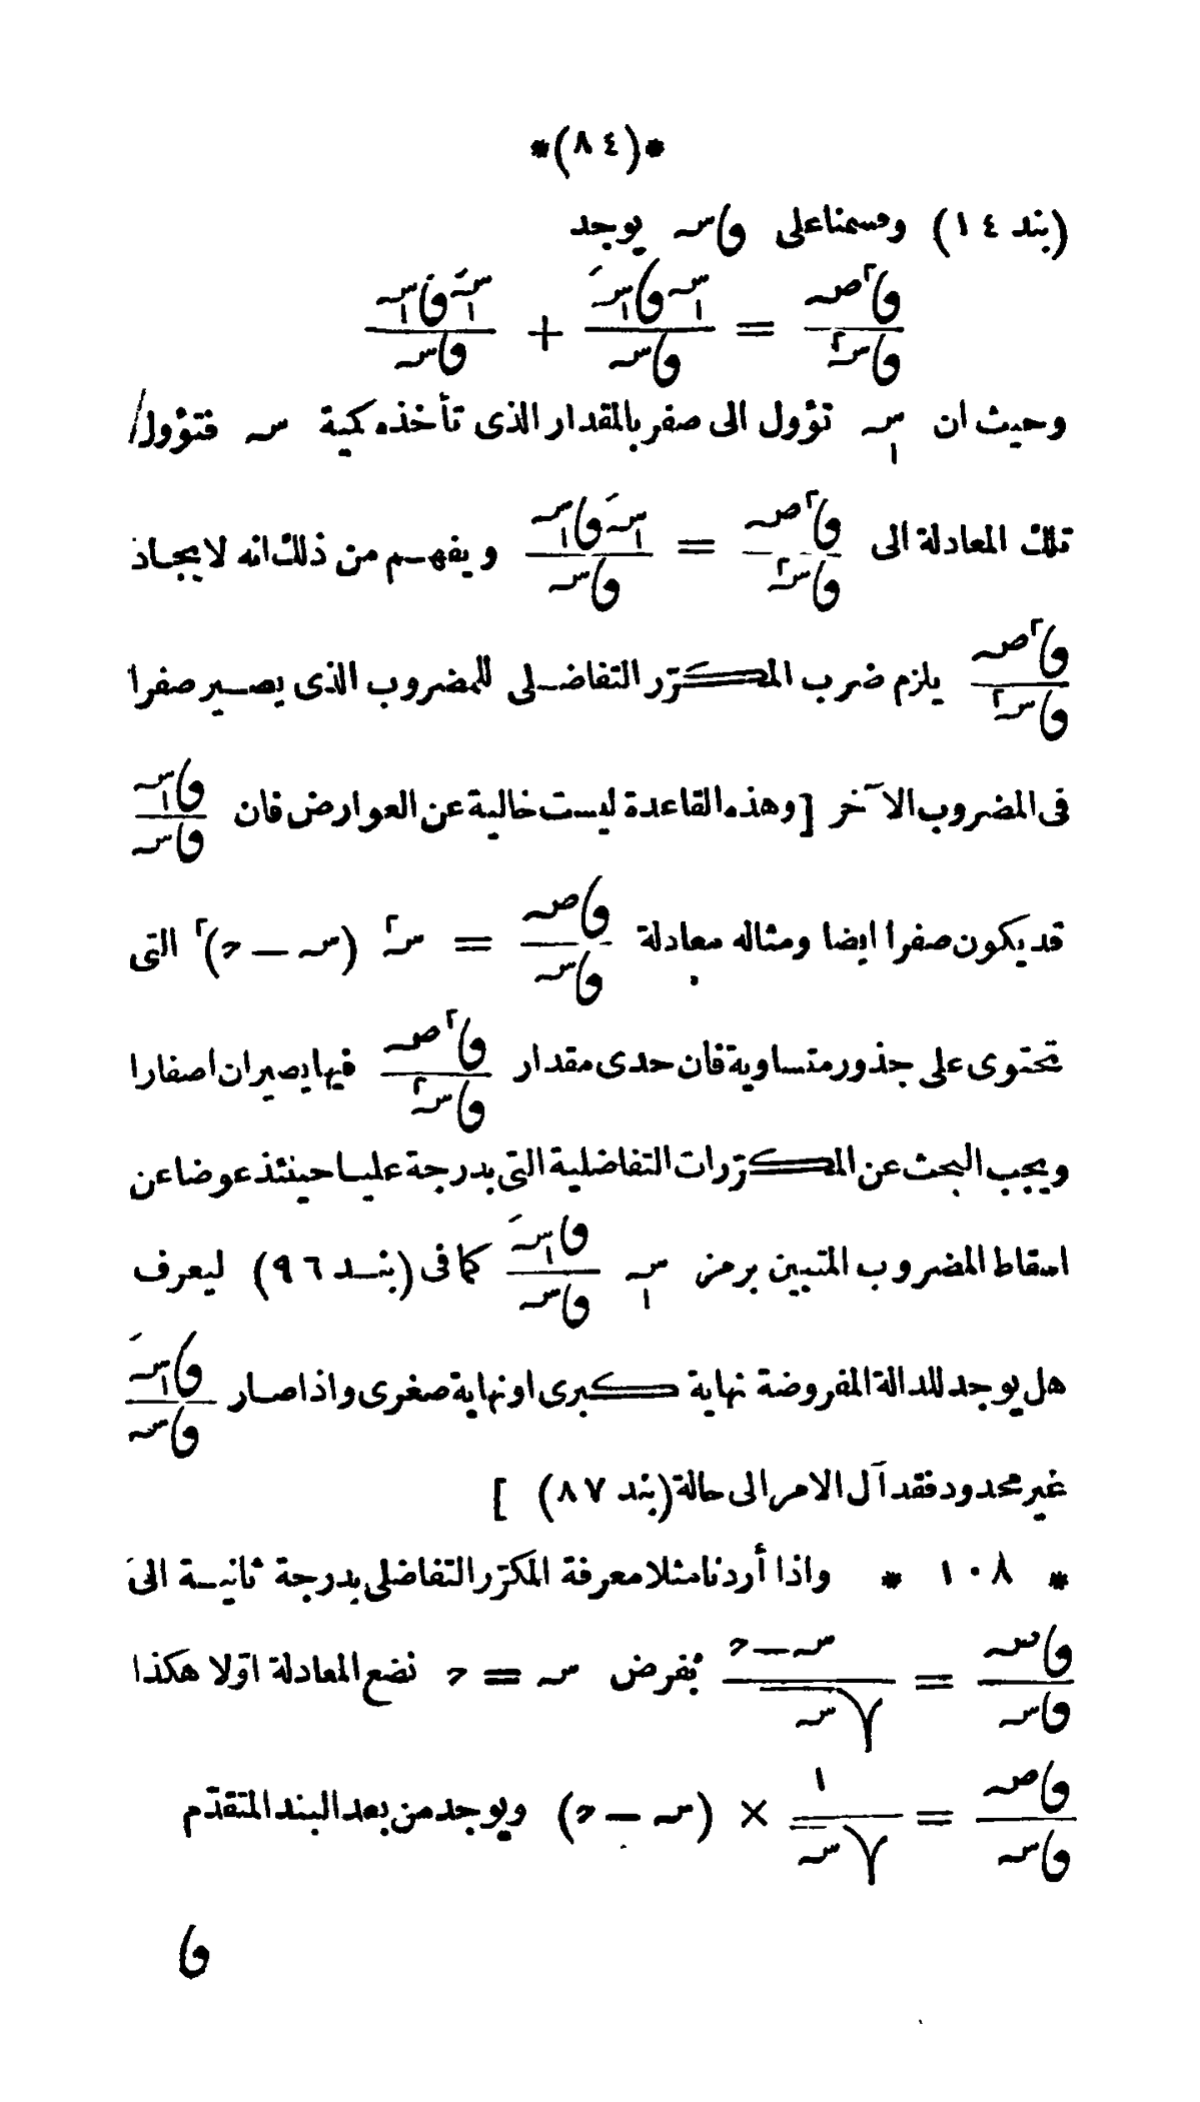 *(٨٤)*
(بند ١٤) وقسمنا على وٵس يوجد
وٵ٢ص / وٵس٢ = اس وٵاسَ / وٵس + اسَ وٵاس / وٵس
وحيث ان اس تؤول الى صفر بالمقدار الذى تأخذه كمية س فتؤول
تلك المعادلة الى وٵ٢ص / وٵس٢ = اسَ وٵاس / وٵس ويفهم من ذلك انه لايجاد
وٵ٢ص / وٵس٢ يلزم ضرب المكرّر التفاضلى للمضروب الذى يصير صفرا
فى المضروب الآخر [وهذه القاعدة ليست خالية عن العوارض فان وٵاس / وٵس
قد يكون صفرا ايضا ومثاله معادلة وٵص / وٵس = س٢ (س − ح)٢ التى
تحتوى على جذور متساوية فان حدى مقدار وٵ٢ص / وٵس٢ فيها يصيران اصفارا
ويجب البحث عن المكرّرات التفاضلية التى بدرجة عليا حينئذ عوضا عن
اسقاط المضروب المتبين برمز اس وٵاسَ / وٵس كما فى (بند ٩٦) ليعرف
هل يوجد للدالة المفروضة نهاية كبرى او نهاية صغرى واذا صار وٵاسَ / وٵس
غير محدود فقد آل الامر الى حالة (بند ٨٧) ]
* ١٠٨ * واذا أردنا مثلا معرفة المكرّر التفاضلى بدرجة ثانية الى
وٵص / وٵس = س − ح / √س بفرض س = ح نضع المعادلة اوّلا هكذا
وٵص / وٵس = ١ / √س × (س − ح) ويوجد من بعد البند المتقدّم
وٵ